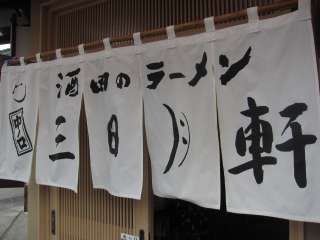 酒田のラーメン
三日月軒
中町